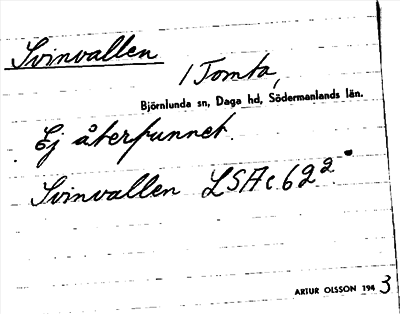 Svinvallen
/ Tomta,
Björnlunda sn, Daga hd, Södermanlands län.
Ej återfunnet.
Svinvallen LSAc. 62 2.
ARTUR OLSSON 1943